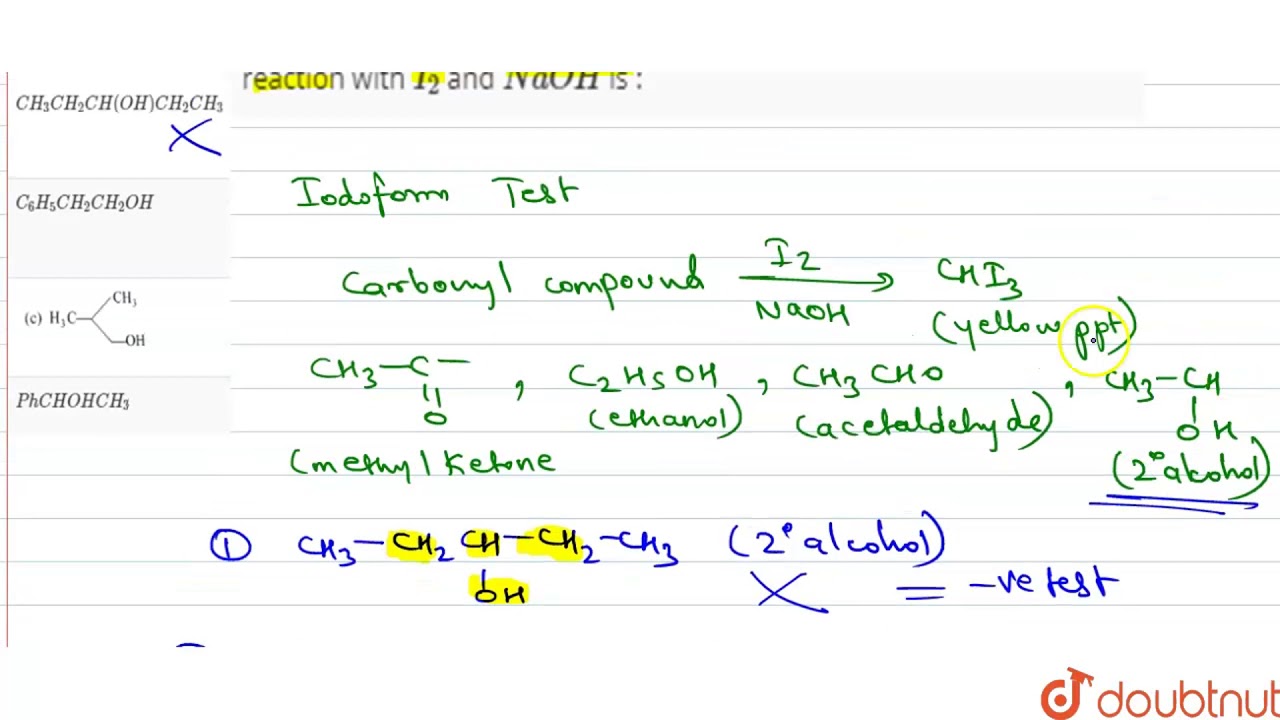 reaction with I₂ and NaOH is :
CH₃CH₂CH(OH)CH₂CH₃
C₆H₅CH₂CH₂OH
(c) H₃C
CH₃
OH
PhCHOHCH₃
Iodoform Test
Carbonyl compound I₂ NaOH CHI₃
(yellow ppt)
CH₃-C- , C₂H₅OH , CH₃CHO , CH₃-CH
O (ethanol) (acetaldehyde) OH
(methyl Ketone (2° alcohol)
① CH₃-CH₂ CH-CH₂-CH₃ (2° alcohol)
OH X = -ve test
doubtnut